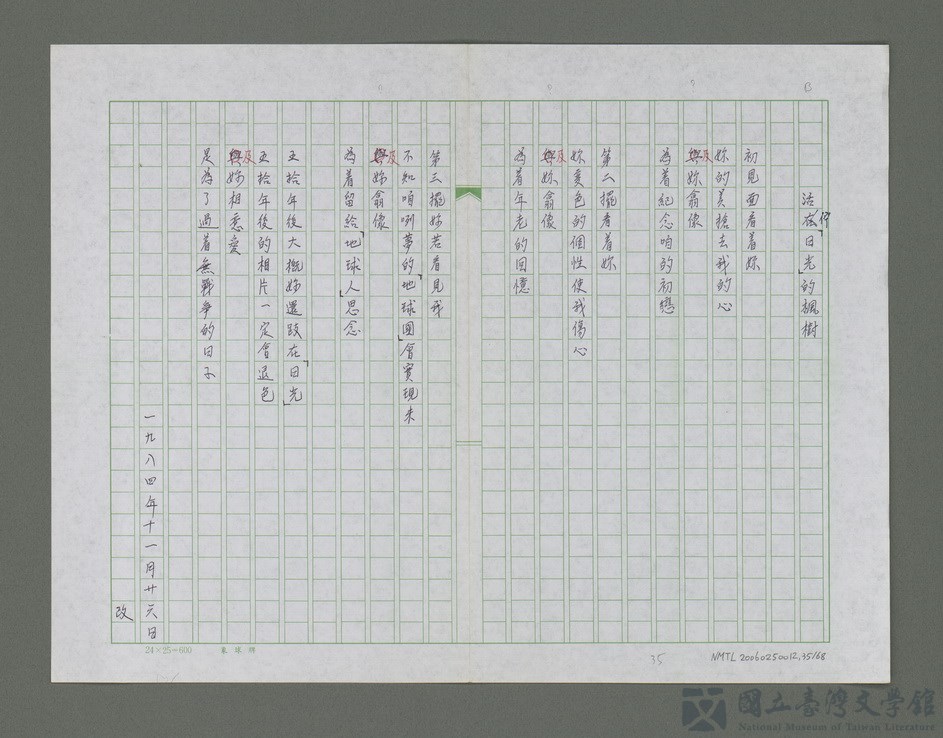 活佇「日光」的楓樹
初見面看着妳
妳的美搶去我的心
及妳翕像
為着紀念咱的初戀
第二擺看着妳
妳変色的個性使我傷心
及妳翕像
為着年老的回憶
第三擺妳若看見我
不知咱咧夢的「地球國」會實現未
及妳翕像
為着留給「地球人」思念
五拾年後大概妳還跂在「日光」
五拾年後的相片一定會退色
及妳相意愛
是為了過着無戰爭的日子
一九八四年十一月廿六日
改
24×25=600
35
NMTL 20060250012,35/68
國立臺灣文學館
National Museum of Taiwan Literature